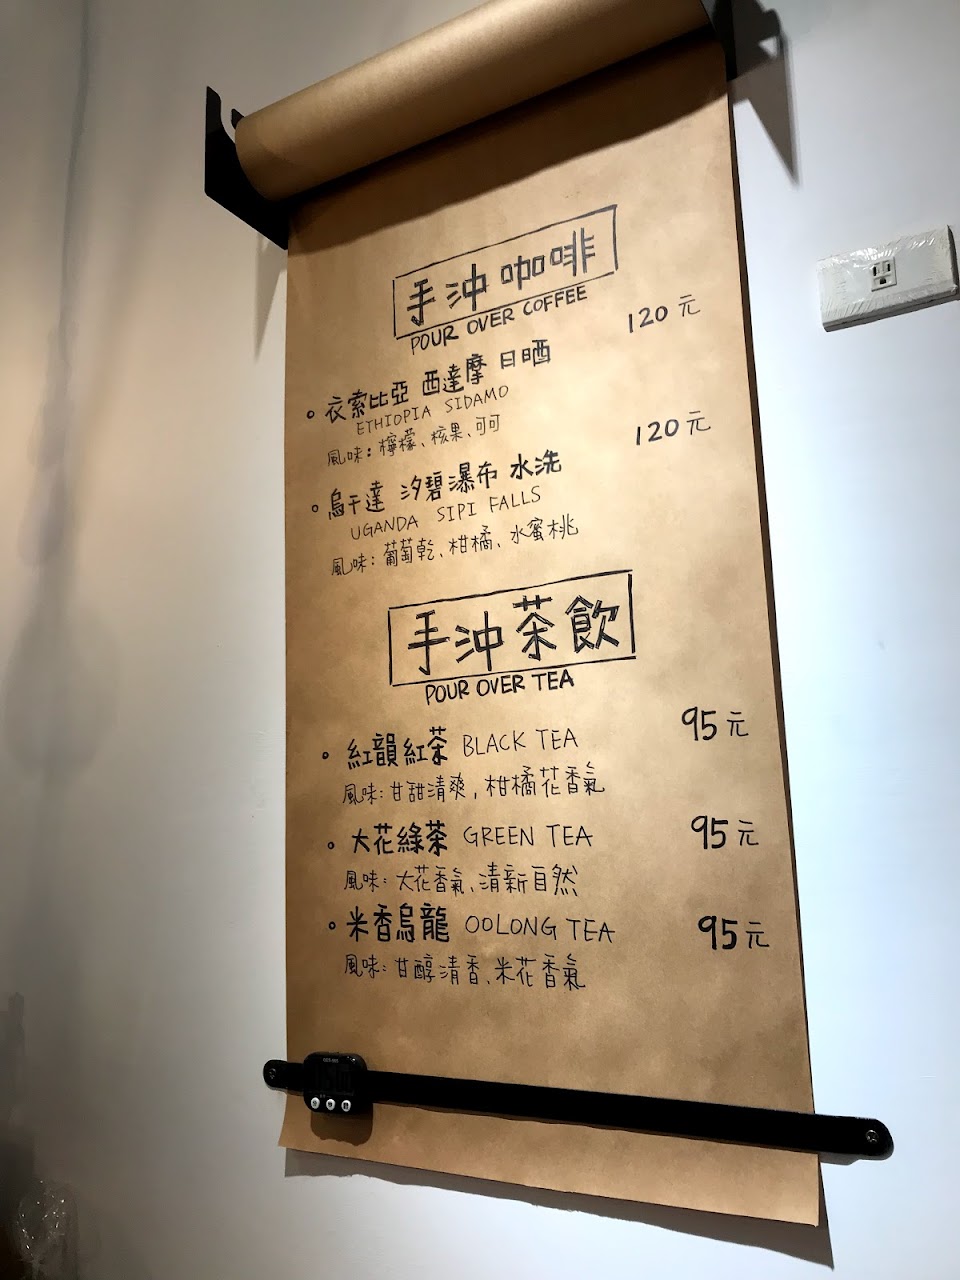 手沖咖啡
POUR OVER COFFEE
120元
衣索比亞 西達摩 日晒
ETHIOPIA SIDAMO
風味：檸檬、核果、可可
120元
烏干達 汐碧瀑布 水洗
UGANDA SIPI FALLS
風味：葡萄乾、柑橘、水蜜桃
手沖茶飲
POUR OVER TEA
紅韻紅茶 BLACK TEA 95元
風味：甘甜清爽，柑橘花香氣
大花綠茶 GREEN TEA 95元
風味：大花香氣、清新自然
米香烏龍 OOLONG TEA 95元
風味：甘醇清香、米花香氣